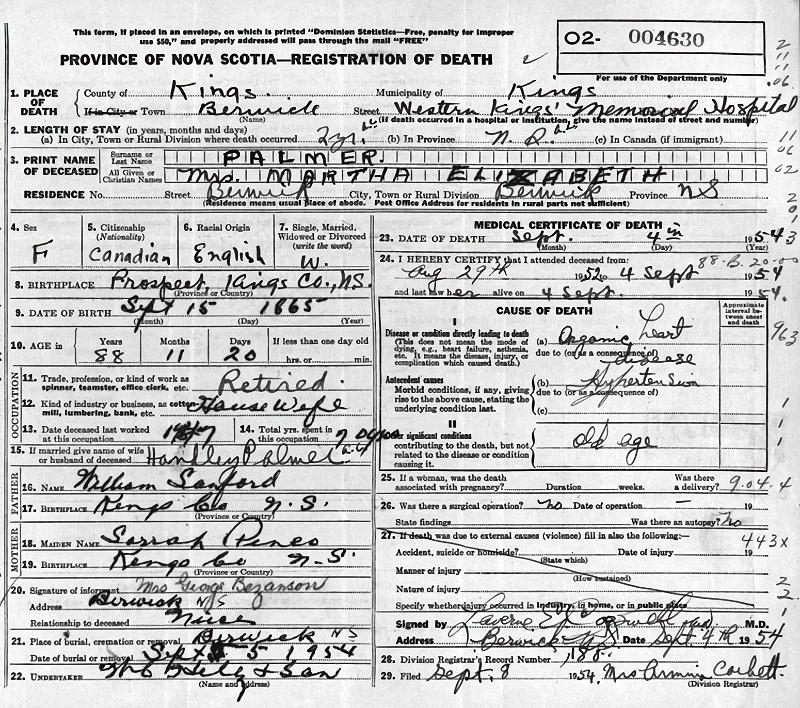 This form, if placed in an envelope, on which is printed "Dominion Statistics—Free, penalty for improper
use $50," and properly addressed will pass through the mail "FREE"
O2- 004630
For use of the Department only
PROVINCE OF NOVA SCOTIA—REGISTRATION OF DEATH
1. PLACE OF DEATH
County of Kings. Municipality of Kings
If in City or Town Berwick Street Western Kings' Memorial Hospital
(Name) (If death occurred in a hospital or institution, give the name instead of street and number)
2. LENGTH OF STAY (in years, months and days)
(a) In City, Town or Rural Division where death occurred 2 yr. (b) In Province N.R. (c) In Canada (if immigrant)
3. PRINT NAME OF DECEASED
Surname or Last Name PALMER.
All Given or Christian Names Mrs. MARTHA ELIZABETH
RESIDENCE No. Street Berwick City, Town or Rural Division Berwick Province NS
(Residence means usual place of abode. Post Office Address for residents in rural parts not sufficient)
4. Sex F
5. Citizenship (Nationality) Canadian
6. Racial Origin English
7. Single, Married, Widowed or Divorced (write the word) W.
8. BIRTHPLACE Prospect, Kings Co., N.S.
(Province or Country)
9. DATE OF BIRTH Sept 15 1865
(Month) (Day) (Year)
10. AGE Years 88 Months 11 Days 20 If less than one day old
hrs. or min.
OCCUPATION
11. Trade, profession, or kind of work as spinner, teamster, office clerk, etc. Retired.
12. Kind of industry or business, as cotton mill, lumbering, bank, etc. House Wife
13. Date deceased last worked at this occupation
14. Total yrs. spent in this occupation
15. If married give name of wife or husband of deceased Handley Palmer
FATHER
16. NAME William Sanford
17. BIRTHPLACE Kings Co N.S.
(Province or Country)
MOTHER
18. MAIDEN NAME Sarrah Pineo
19. BIRTHPLACE Kings Co N.S.
(Province or Country)
20. Signature of informant Mrs George Bezanson
Address Berwick N/S
Relationship to deceased Niece
21. Place of burial, cremation or removal Berwick NS
Date of burial or removal Sept 5 1954
22. UNDERTAKER & Son
(Name and address)
MEDICAL CERTIFICATE OF DEATH
23. DATE OF DEATH Sept. 4 1954
(Month) (Day) (Year)
24. I HEREBY CERTIFY that I attended deceased from:
Aug 29th 1952 to 4 Sept 1954
and last saw her alive on 4 Sept. 1954.
88-B. 20-00
CAUSE OF DEATH
Approximate interval between onset and death
I
Disease or condition directly leading to death
(This does not mean the mode of dying, e.g., heart failure, asthenia, etc. It means the disease, injury, or complication which caused death.)
(a) Organic heart disease
due to (or as a consequence of)
Antecedent causes
Morbid conditions, if any, giving rise to the above cause, stating the underlying condition last.
(b) Hypertension
due to (or as a consequence of)
(c)
II
Other significant conditions
contributing to the death, but not related to the disease or condition causing it.
Old age
25. If a woman, was the death associated with pregnancy? Duration weeks. Was there a delivery?
9.04.4
26. Was there a surgical operation? No Date of operation — 19
State findings Was there an autopsy? No
27. If death was due to external causes (violence) fill in also the following:—
443X
Accident, suicide or homicide? Date of injury 19
(State which)
Manner of injury
(How sustained)
Nature of injury
Specify whether injury occurred in industry, in home, or in public place
Signed by M.D.
Address Berwick NS Date Sept 4th 1954
28. Division Registrar's Record Number 188
29. Filed Sept. 8 1954 Mrs Armin Corbett
(Division Registrar)